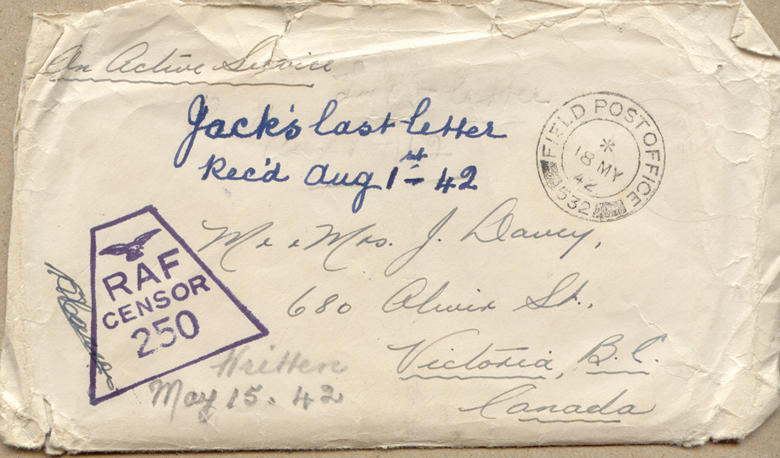 On Active Service
Jack's last letter
Rec'd Aug 1st - 42
FIELD POST OFFICE
18 MY
42
532
Mr & Mrs. J. Davey,
680 Oliver St.,
Victoria, B.C.
Canada
RAF
CENSOR
250
Written
May 15. 42